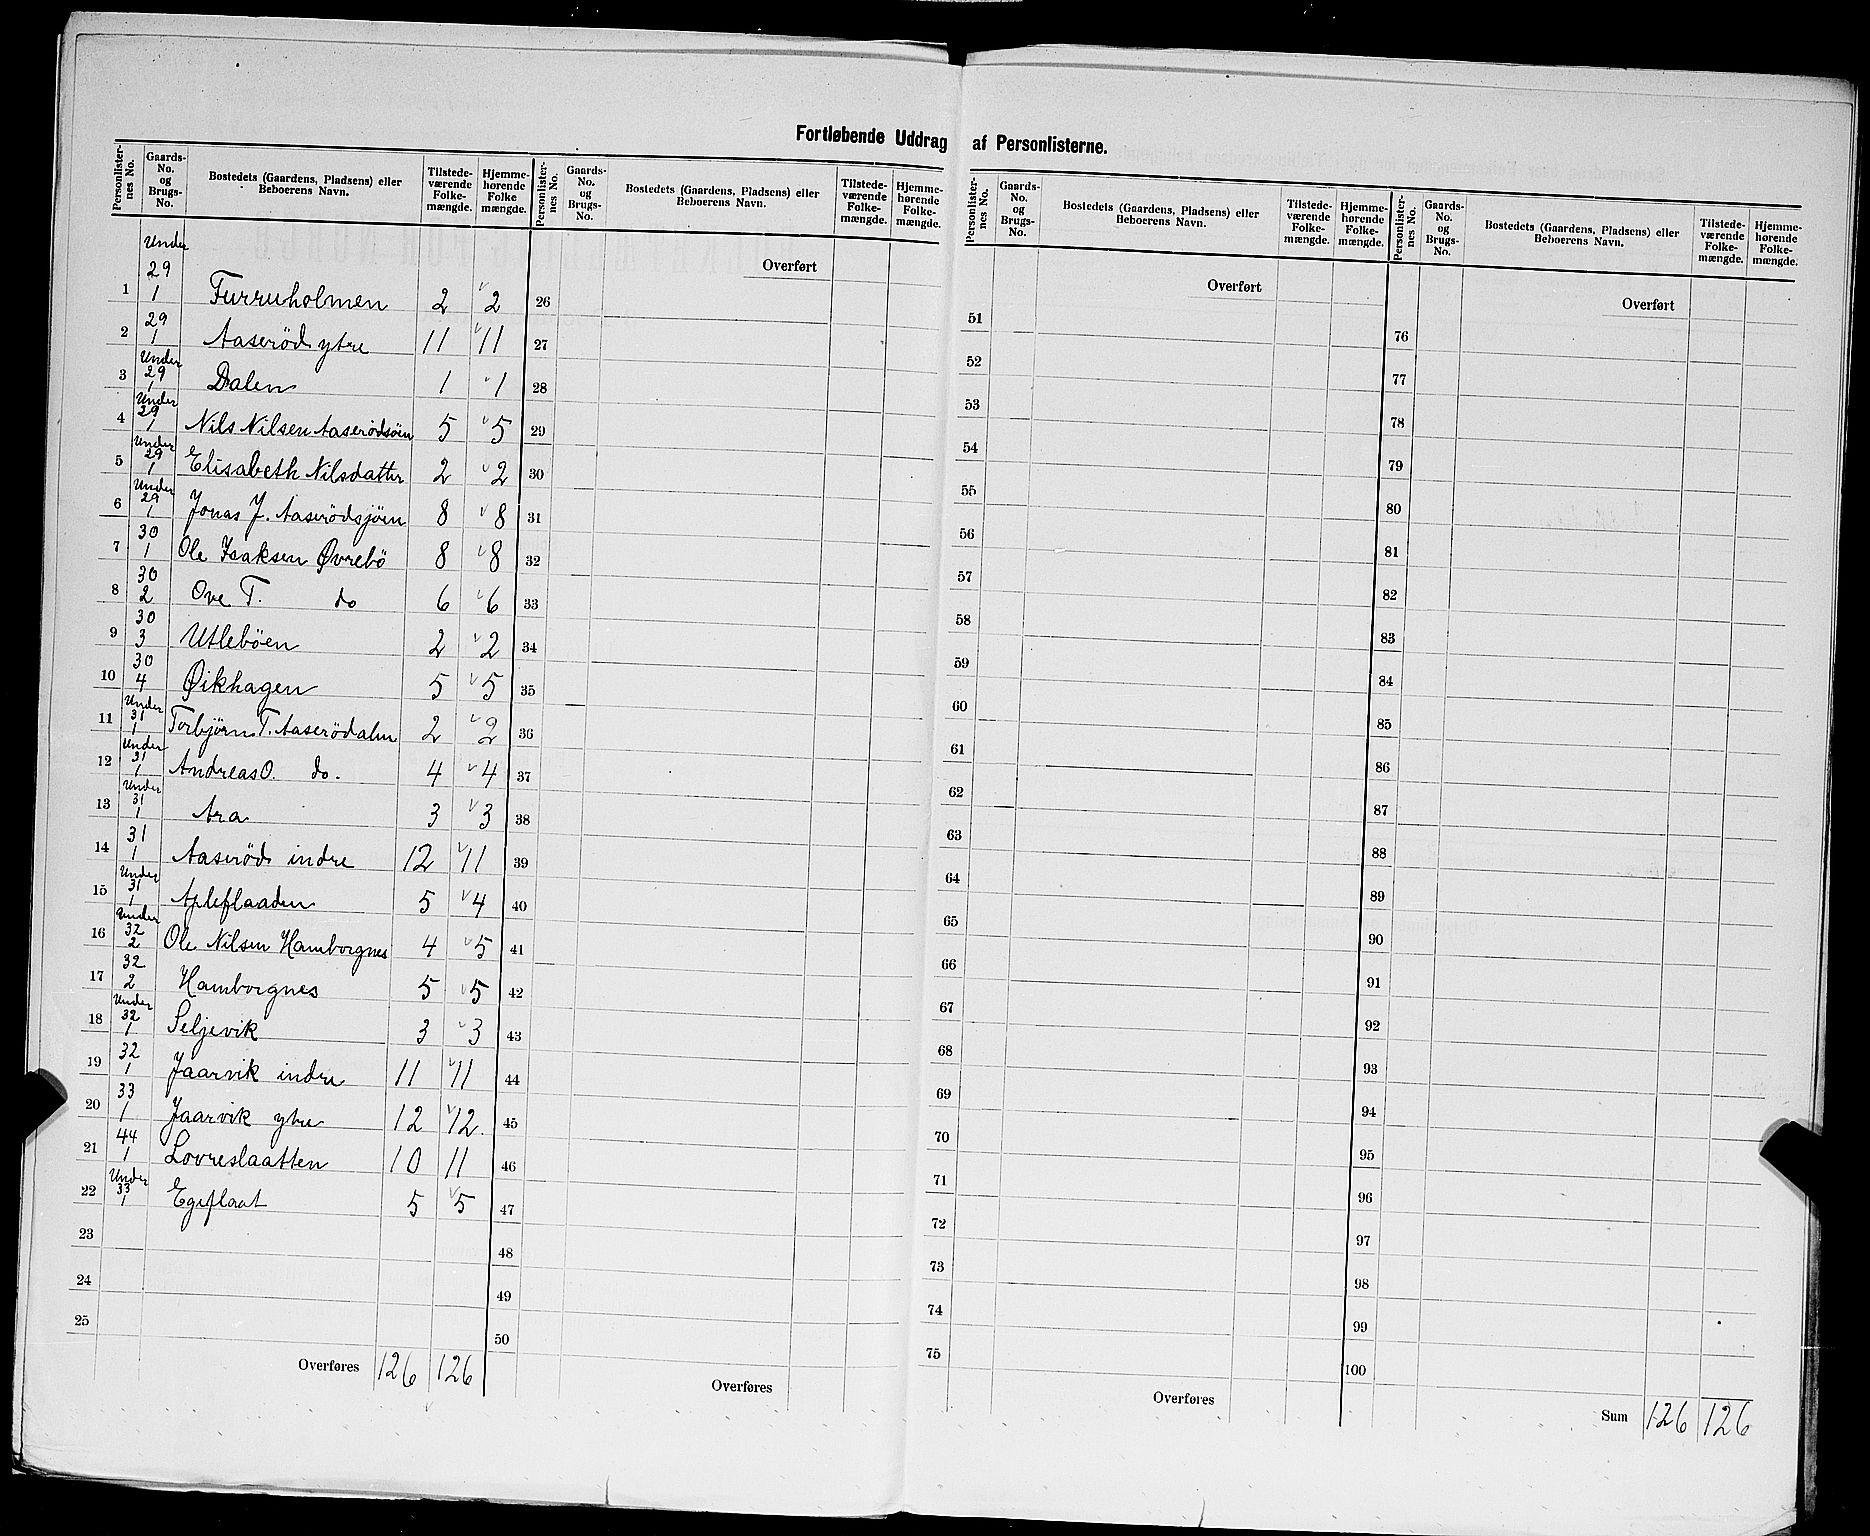 Fortløbende Uddrag af Personlisterne.
Personlisternes No. | Gaards-No. og Brugs-No. | Bostedets (Gaardens, Pladsens) eller Beboerens Navn. | Tilstedeværende Folkemængde. | Hjemmehørende Folkemængde.
1 | Under 29 1 | Furruholmen | 2 | 2
2 | 29 1 | Aaseröd ytre | 11 | 11
3 | Under 29 1 | Dalen | 1 | 1
4 | Under 29 1 | Nils Nilsen Aaserödsöen | 5 | 5
5 | Under 29 1 | Elisabeth Nilsdatter | 2 | 2
6 | Under 29 1 | Jonas J. Aaserödsjöen | 8 | 8
7 | 30 1 | Ole Isaksen Øvrebö | 8 | 8
8 | 30 2 | Ove T. do | 6 | 6
9 | 30 3 | Utleböen | 2 | 2
10 | 30 4 | Øikhagen | 5 | 5
11 | Under 31 1 | Torbjørn T. Aaserödalen | 2 | 2
12 | Under 31 1 | Andreas O. do. | 4 | 4
13 | Under 31 1 | Ara | 3 | 3
14 | 31 1 | Aaseröd indre | 12 | 11
15 | Under 31 1 | Apleflaaden | 5 | 4
16 | Under 32 2 | Ole Nilsen Hamborgnes | 4 | 5
17 | 32 2 | Hamborgnes | 5 | 5
18 | Under 32 1 | Seljevik | 3 | 3
19 | 32 1 | Jaarvik indre | 11 | 11
20 | 33 1 | Jaarvik ytre | 12 | 12.
21 | 44 1 | Lovreslaatten | 10 | 11
22 | Under 33 1 | Egeflaat | 5 | 5
23
24
25
Overføres | 126 | 126
Personlisternes No. | Gaards-No. og Brugs-No. | Bostedets (Gaardens, Pladsens) eller Beboerens Navn. | Tilstedeværende Folkemængde. | Hjemmehørende Folkemængde.
Overført
26
27
28
29
30
31
32
33
34
35
36
37
38
39
40
41
42
43
44
45
46
47
48
49
50
Overføres
Personlisternes No. | Gaards-No. og Brugs-No. | Bostedets (Gaardens, Pladsens) eller Beboerens Navn. | Tilstedeværende Folkemængde. | Hjemmehørende Folkemængde.
Overført
51
52
53
54
55
56
57
58
59
60
61
62
63
64
65
66
67
68
69
70
71
72
73
74
75
Overføres
Personlisternes No. | Gaards-No. og Brugs-No. | Bostedets (Gaardens, Pladsens) eller Beboerens Navn. | Tilstedeværende Folkemængde. | Hjemmehørende Folkemængde.
Overført
76
77
78
79
80
81
82
83
84
85
86
87
88
89
90
91
92
93
94
95
96
97
98
99
100
Sum | 126 | 126